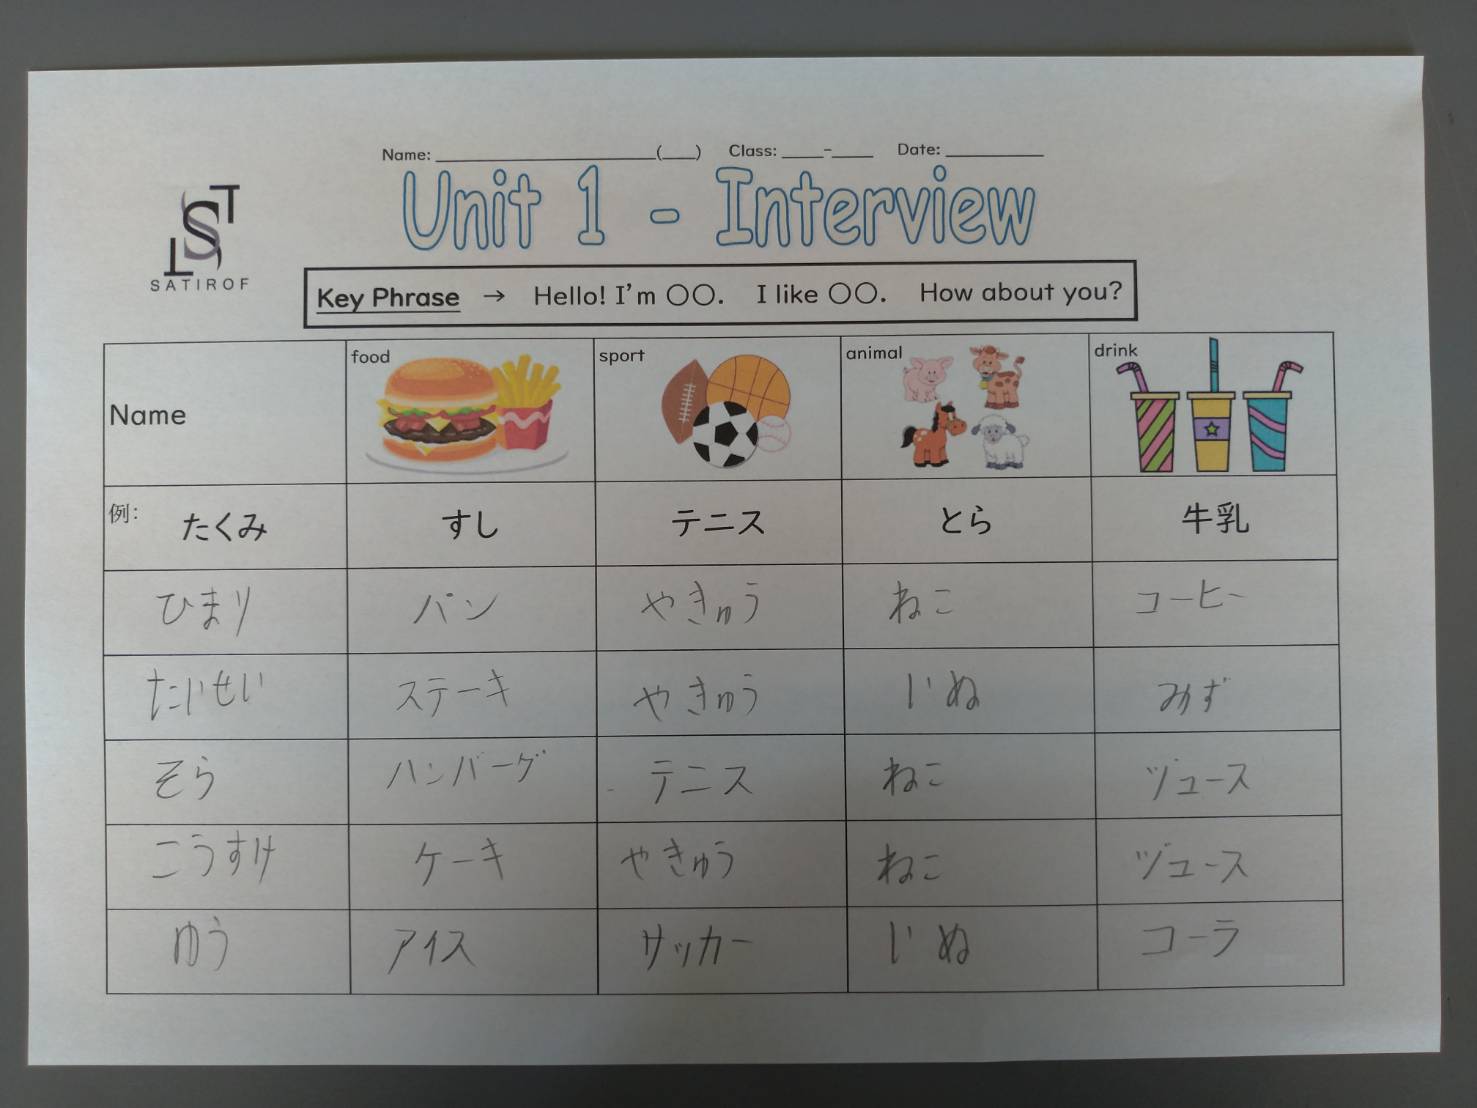 Name: ____________(___) Class: ____-____ Date: ________
Unit 1 - Interview
SATIROF
Key Phrase → Hello! I'm ○○. I like ○○. How about you?
Name food sport animal drink
例: たくみ すし テニス とら 牛乳
ひまり パン やきゅう ねこ コーヒー
たいせい ステーキ やきゅう いぬ みず
そら ハンバーグ テニス ねこ ヅュース
こうすけ ケーキ やきゅう ねこ ヅュース
ゆう アイス サッカー いぬ コーラ